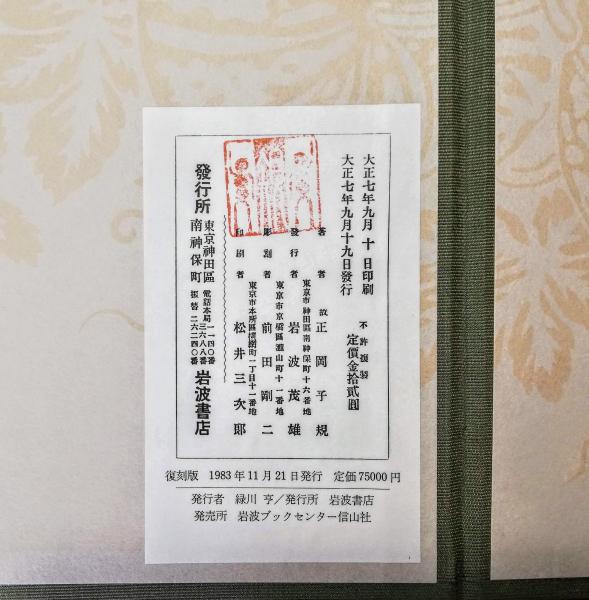 大正七年九月 十 日印刷
大正七年九月十九日發行
不許複製
定價金拾貳圓
著者 故 正岡子規
東京市神田區南神保町十六番地
發行者 岩波茂雄
東京市京橋區瀧山町十一番地
彫刻者 前田剛二
東京市本所區番場町一丁目十一番地
印刷者 松井三次郎
發行所 東京神田區南神保町 電話本局 一一四〇番 三六八八番 振替 二六二四〇番 岩波書店
復刻版 1983年11月21日発行 定価75000円
発行者 緑川 亨/発行所 岩波書店
発売所 岩波ブックセンター信山社